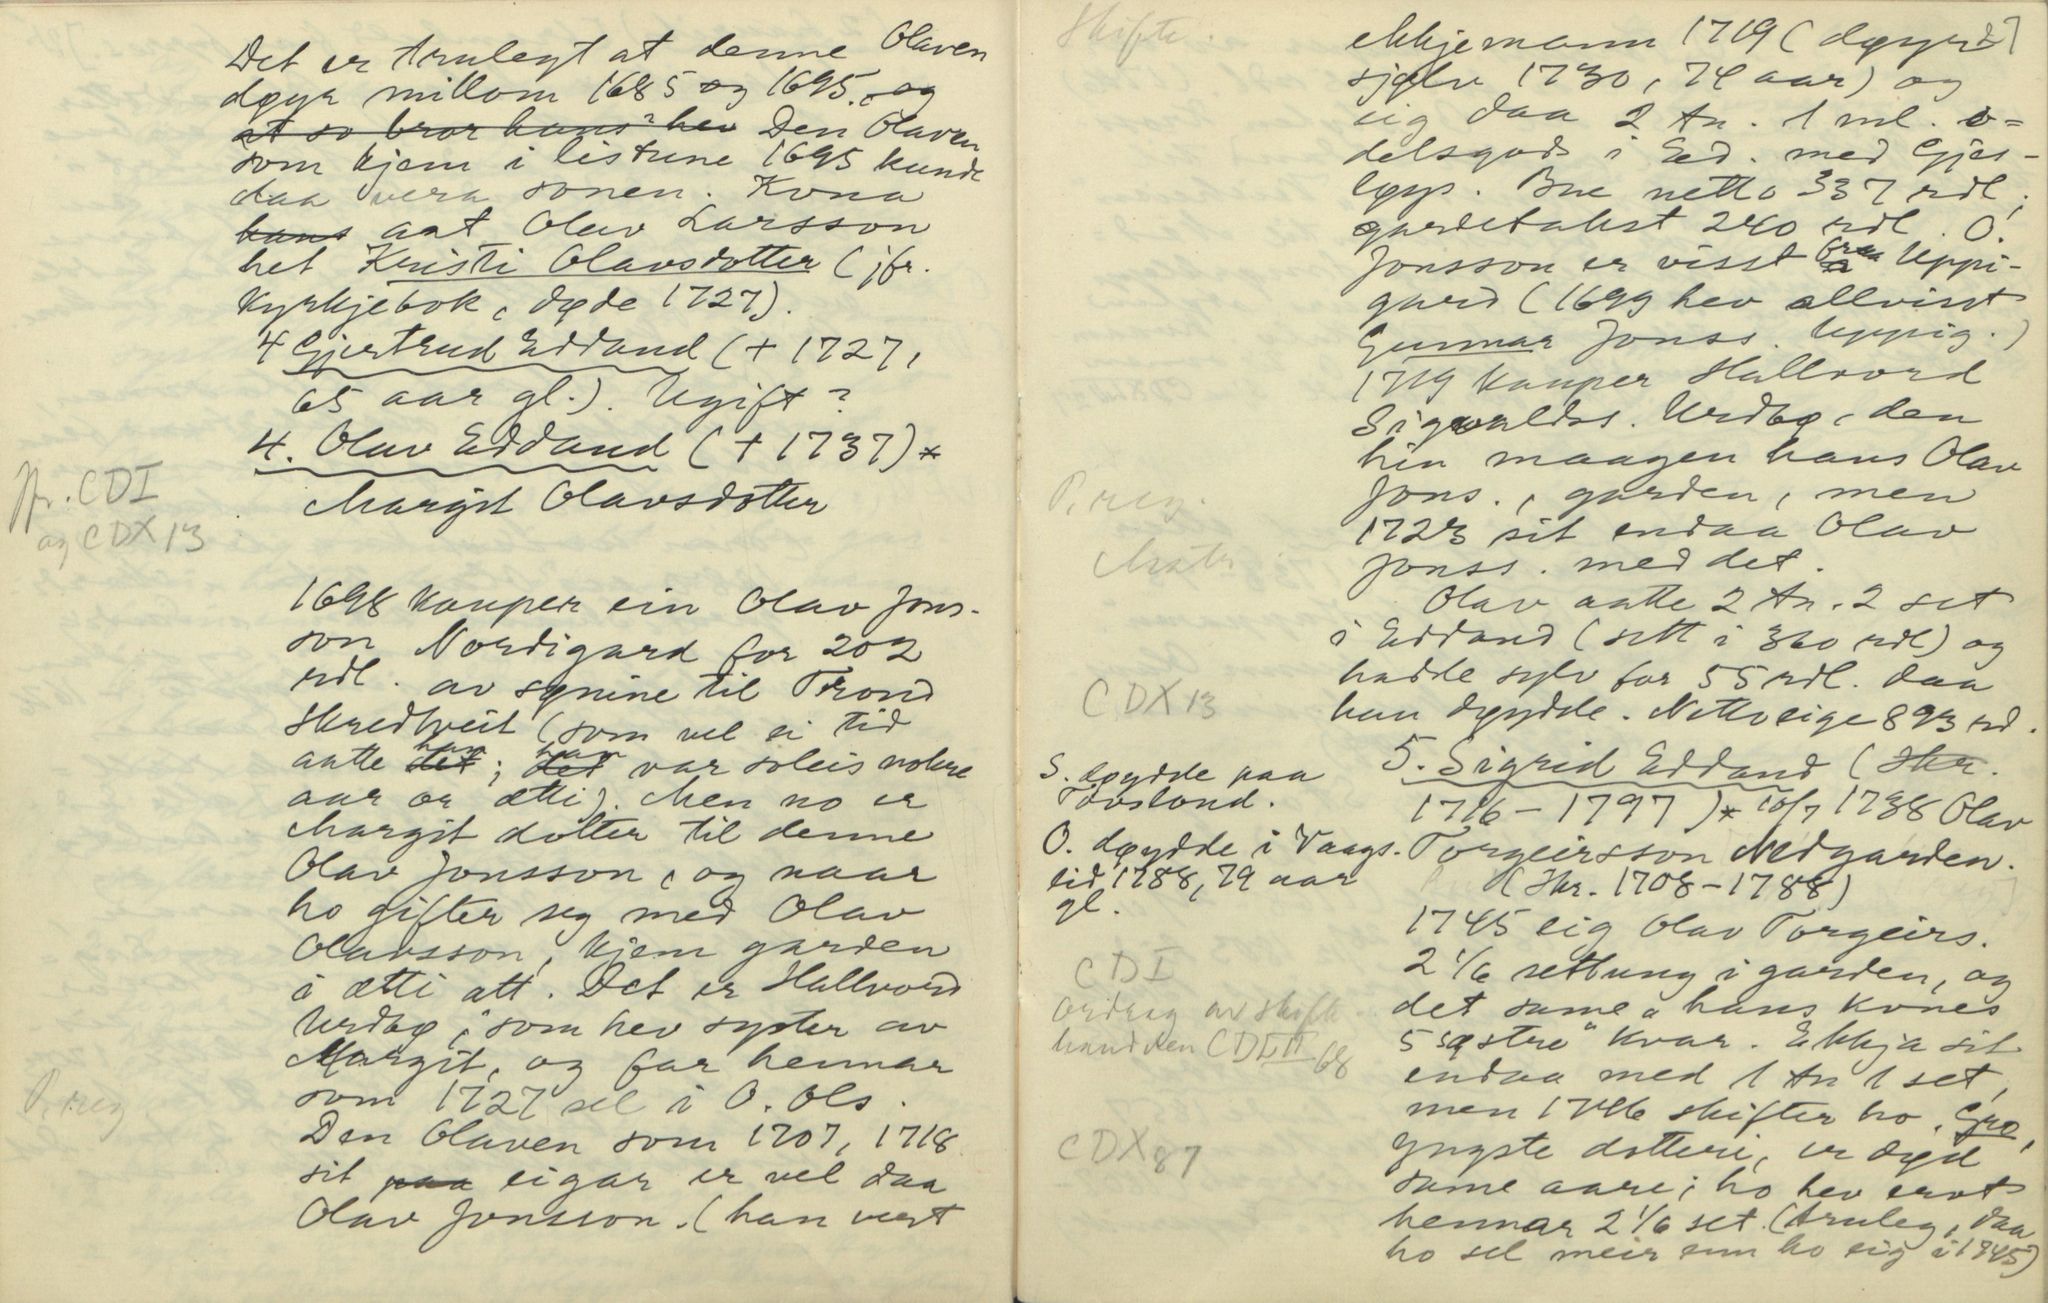 Det er trulegt at denne Olaven
døyr millom 1685 og 1695, og
at so bror hans hev Den Olaven
som kjem i listune 1695 kunde
daa vera sonen. Kona
hans aat Olav Larsson
het Kristi Olavsdotter (jfr.
Kyrkjebok, døde 1727).
4 Gjertrud Eddand (+ 1727,
65 aar gl.). Ugift?
4. Olav Eddand (+ 1737) *
Jfr. CDI
og CDX 13
Margit Olavsdotter
1698 kauper ein Olav Jons-
son Nordigard for 202
rdl. av synine til Trond
Skredtveit (som vel ei tid
aatte det han; det han var soleis nokre
aar or ætti). Men no er
Margit dotter til denne
Olav Jonsson, og naar
ho gifter seg med Olav
Olavsson, kjem garden
i ætti att. Det er Hallvord
Urdbø, som hev syster av
Margit, og far hennar
som 1727 sel i O. Ols.
P. reg
Den Olaven som 1707, 1718
sit paa eigar er vel daa
Olav Jonsson. (han vert
Skifte.
ekkjemann 1719 (døyr
sjølv 1730, 74 aar) og
eig daa 2 tn. 1 ml. o-
delsgods i Ed. med Gjes-
løys. Bue netto 337 rdl;
gardetakst 240 rdl. O.
Jonsson er visst fraa Uppi-
gard (1699 hev allvisst
Gunnar Jonss. Uppig.)
1719 kauper Hallvord
Sigvalds. Urdbø, den
hin maagen hans Olav
P. reg.
Jons., garden, men
1723 sit endaa Olav
Matr.
Jonss. med det.
Olav aatte 2 tn. 2 set
i Eddand (sett i 360 rdl) og
hadde sylv for 55 rdl. daa
CDX 13
han døydde. Netto eige 893 rd.
5. Sigrid Eddand (Skr.
1716 – 1797) * 10/7 1738 Olav
S. døydde paa
Tovsland.
O. døydde i Vaags-
lid 1788, 79 aar
gl.
Torgeirsson Nedgarden.
(Skr. 1708 – 1788)
1745 eig Olav Torgeirs.
2 1/6 settung i garden, og
CDI
ordrag av skifte
handelen CDLII 68
det same "hans kones
5 søstre" kvar. Ekkja sit
endaa med 1 tn 1 set,
men 1746 skifter ho. Gro,
CDX 87
yngste dotteri, er død
same aare; ho hev ervt
hennar 2 1/6 set. (truleg, daa
ho sel meir enn ho eig i 1745)